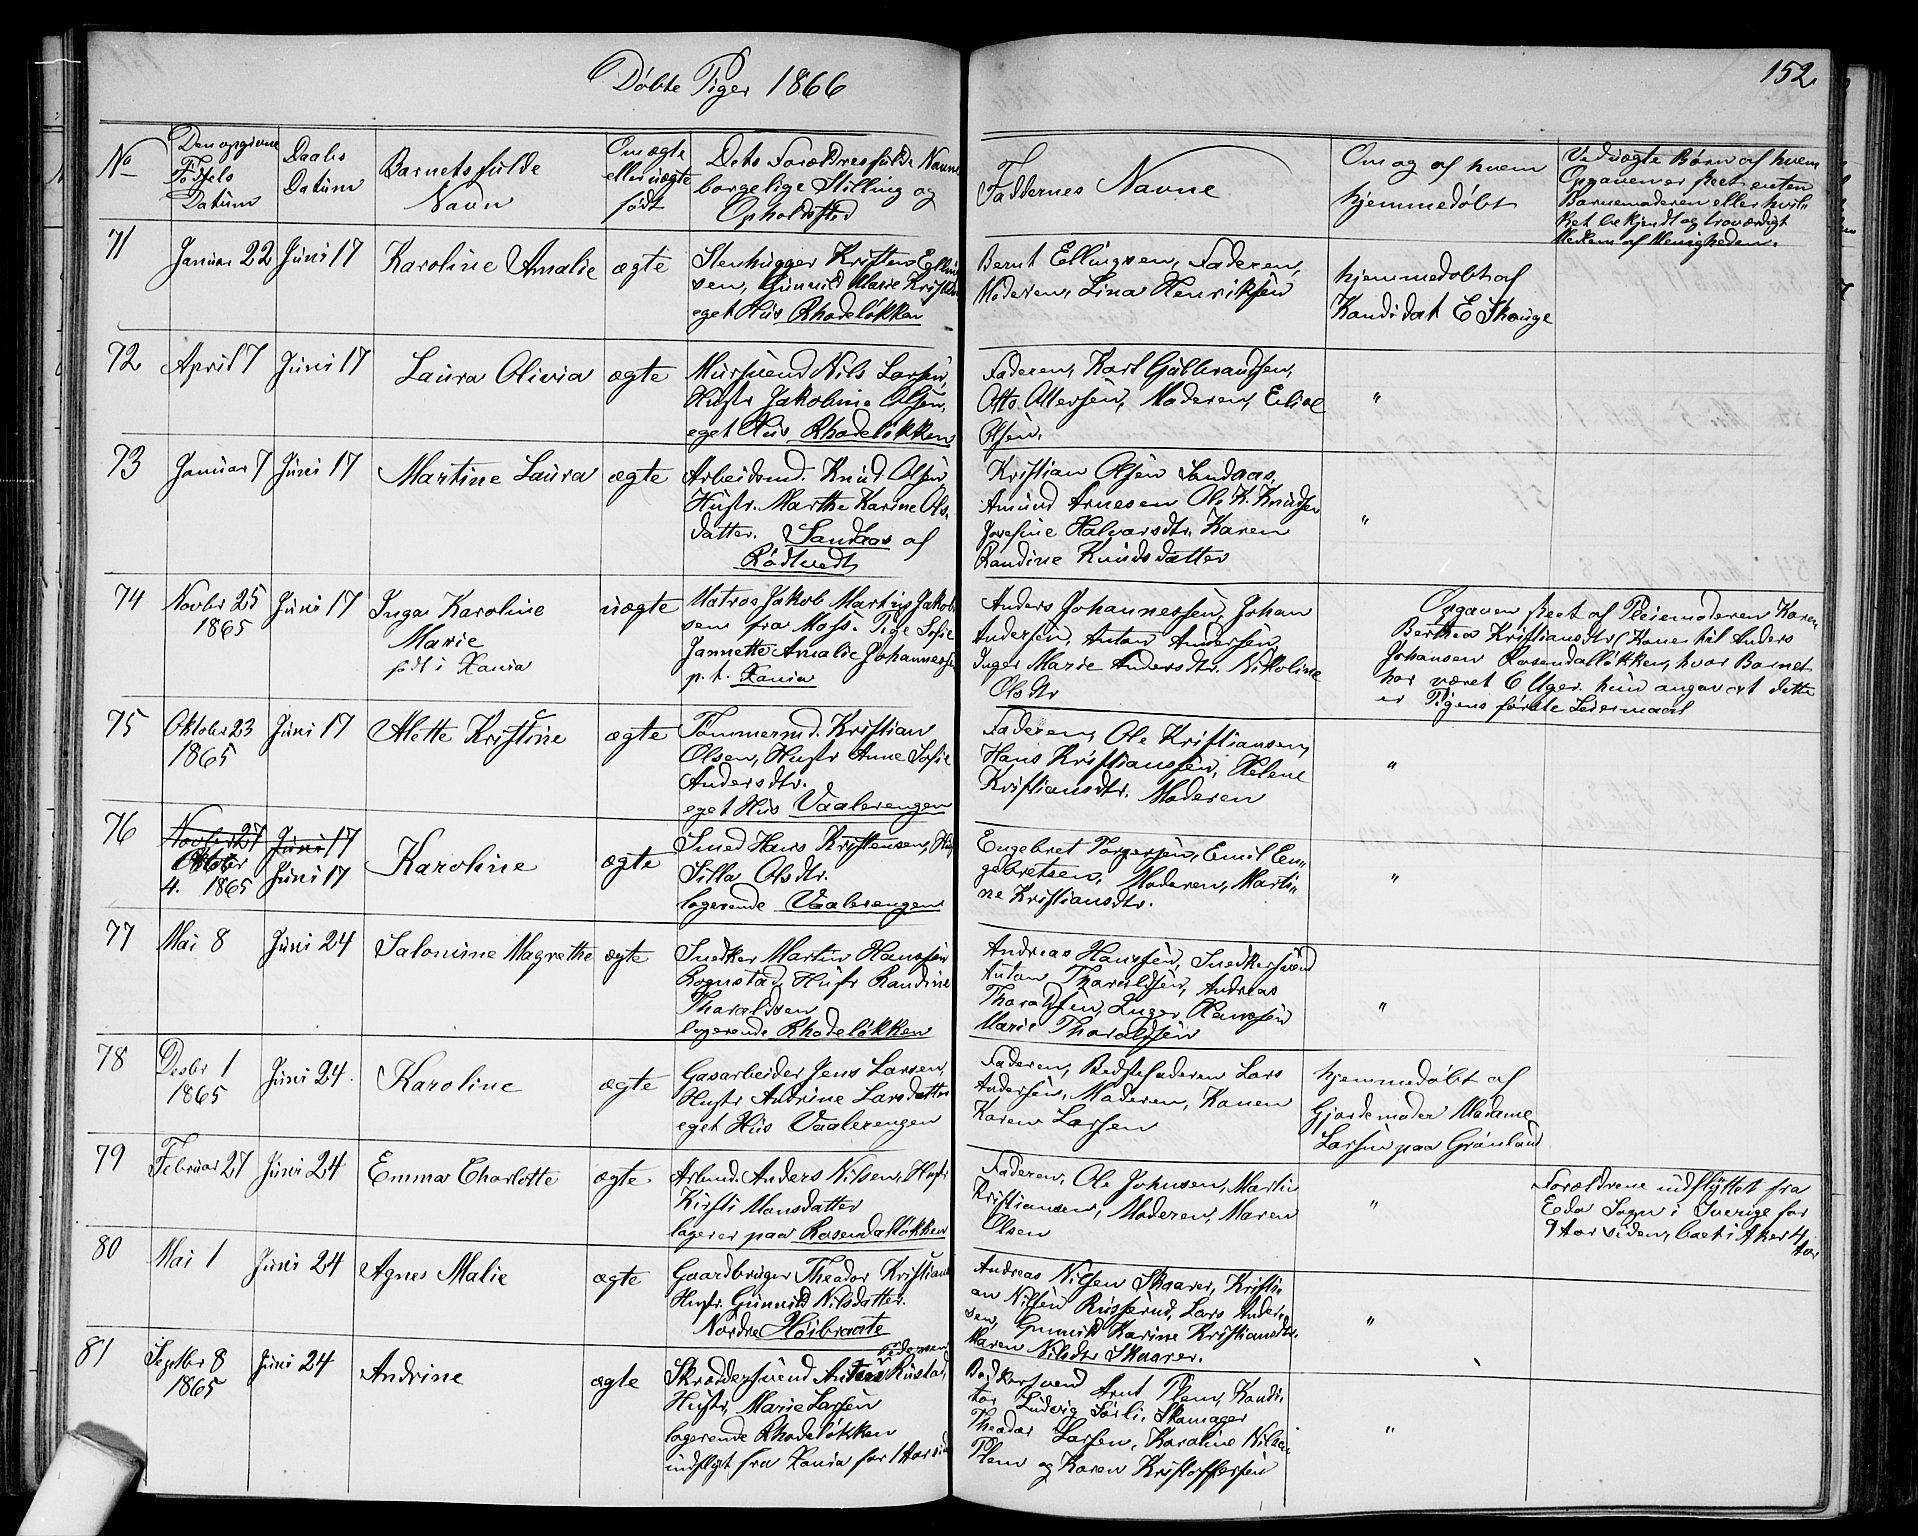 Døbte Piger 1866
152
No
Den opgivne
Fødsels
Datum
Daabs
Datum
Barnets fulde
Navn
Om ægte
eller uægte
født
Dets Forældres fulde Navne
borgelige Stilling og
Opholdsted
Faddernes Navne
Om og af hvem
hjemmedøbt
Ved uægte Børn af hvem
Opgaven er skeet enten
Barnemoderen eller hvil-
ket bekjendt og troværdigt
Medlem af Menigheden.
71
Januar 22
Juni 17
Karoline Amalie
ægte
Stenhugger Kristen Elling
sen, Gunnild Marie
eget Hus Rhodeløkken
Bernt Ellingsen, Faderen,
Moderen, Lina Henriksen
hjemmedøbt af
Kandidat E Skouge
72
April 7
Juni 17
Laura Olivia
ægte
Mursvend Nils Larsen,
Hustr Jakobine Olsen,
eget Hus Rhodeløkken
Faderen, Karl Gulbrandsen,
Otto Ottersen, Moderen,
Olsen.
"
73
Januar 7
Juni 17
Martine Laura
ægte
Arbeidsmd. Knud Olsen
Hustr. Marthe Karine Ols-
datter. Sandaas af
Rødtvedt
Kristian Olsen Sandaas,
Amund Arnesen Ole K. Knudsen
Josefine Halvarsdtr. Karen
Randine Knudsdatter
"
74
Novbr 25
1865
Juni 17
Inga Karoline
Marie
født i Xania
uægte
Matros Jakob Martin Jakob
sen fra Moss. Pige Sofie
Jannette Amalie Johannessen
p. t. Xania
Anders Johannessen, Johan
Andersen, Anton Andersen
Inger Marie Andersdtr. Nikoline
Olsdtr
Opgaven skeet af Pleiemoderen Karen
Berthea Kristiansdtr (Kone til Anders
Johansen Rosendalløkken, hvor Barnet
har været 6 Uger. hun angav at dette
er Pigens første Leiermaal
75
Oktober 23
1865
Juni 17
Alette Kristine
ægte
Tømmermd. Kristian
Olsen, Hustr Anne Sofie
Andersdtr.
eget Hus Vaalerengen
Faderen, Ole Kristiansen,
Hans Kristiansen, Helene
Kristiansdtr. Moderen
"
76
Novbr 27
Oktober
4. 1865
Juni 17
Juni 17
Karoline
ægte
Smed Hans Kristensen, Hus
Silla Olsdtr.
logerende Vaalerengen
Engebret Torgersen, Emil En-
gebretsen, Moderen, Marti-
ne Kristiansdtr.
"
77
Mai 8
Juni 24
Salomine Magrethe
ægte
Snedker Martin Hanssen
Rognstad, Hustr Randine
Tharaldsen
logerende Rhodeløkken
Andreas Hanssen, Snedkersvend
Anton Tharaldsen, Andreas
Tharaldsen, Inger Hanssen
Marie Tharaldsen
"
78
Desbr 1
1865
Juni 24.
Karoline
ægte
Gasarbeider Jens Larsen,
Hustr Andrine Larsdatter
eget Hus Vaalerengen
Faderen, Bedstefaderen Lars
Andersen, Moderen, Konen
Karen Larsen
hjemmedøbt af
Gjordemoder Madame
Larsen paa Grønland
79
Februar 27
Juni 24
Emma Charlotte
ægte
Arbmd. Anders Nilsen, Hustr
Kirsti Monsdatter
logerer paa Rosendalløkken
Faderen, Ole Johnsen, Martin
Kristiansen, Moderen, Maren
Olsen
"
Forældrene indflyttet fra
Eda Sogn i Sverige for
9 Aar siden, boet i Aker 4
Aar
80
Mai 1
Juni 24
Agnes Malie
ægte
Gaardbruger Theodor Kristians
Hustr. Gunnild Nilsdatter.
Nordre Høibraate
Andreas Nilsen Skaarer, Kristi-
an Nilsen Russerud, Lars Ander-
sen, Gunnild Karine Kristiansdtr.
Maren Nilsdtr Skaarer.
"
81
Septbr 8
1865
Juni 24
Andrine
ægte
Pedersen
Skræddersvend Anders Rustad,
Hustr, Marie Larsen
logerende Rhodeløkken
indflyt fra Xania for 1 Aar sid
Bødkersvend Arnt Plem, Kondi-
tor Ludvig Sørli, Skomager
Theodor Larsen, Karoline Nilsen
Plem og Karen Kristoffersen
"